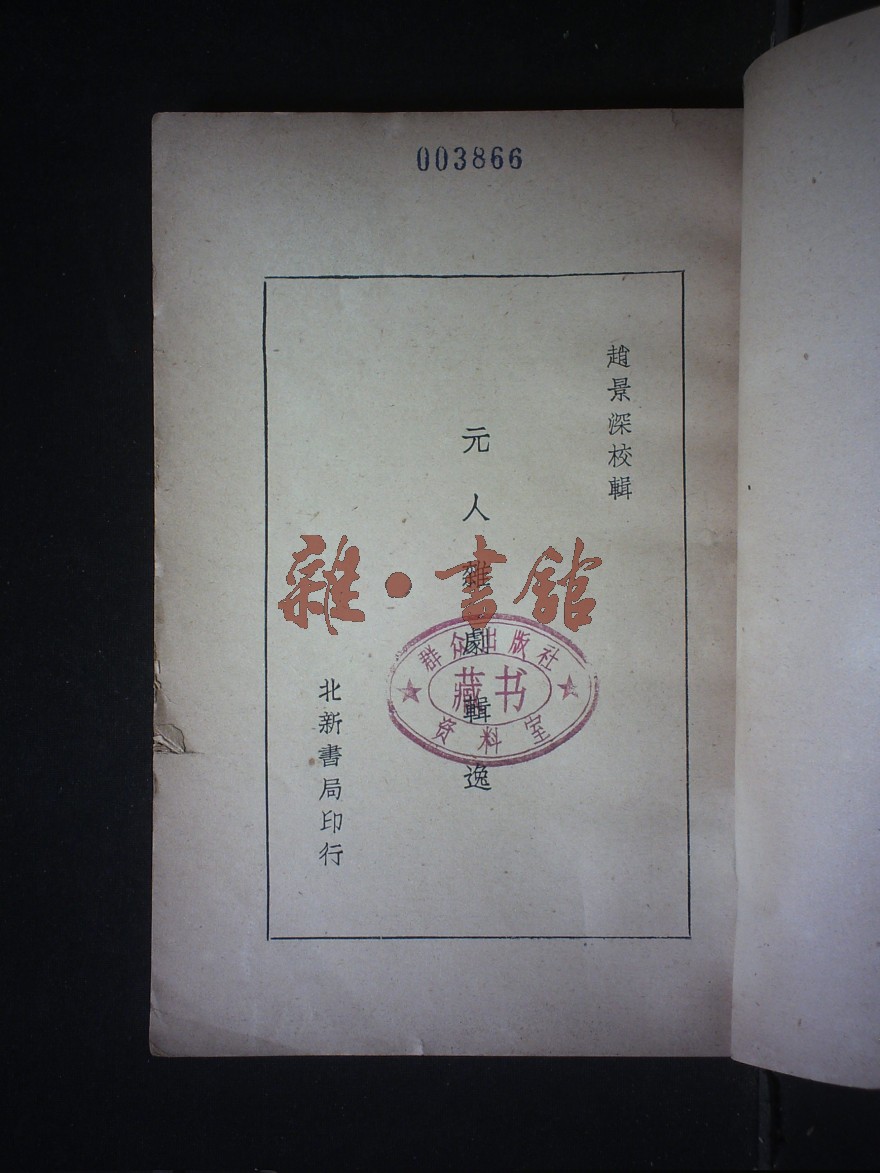 003866
趙景深校輯
元人雜劇輯逸
北新書局印行
雜·書館
群众出版社
藏书
资料室